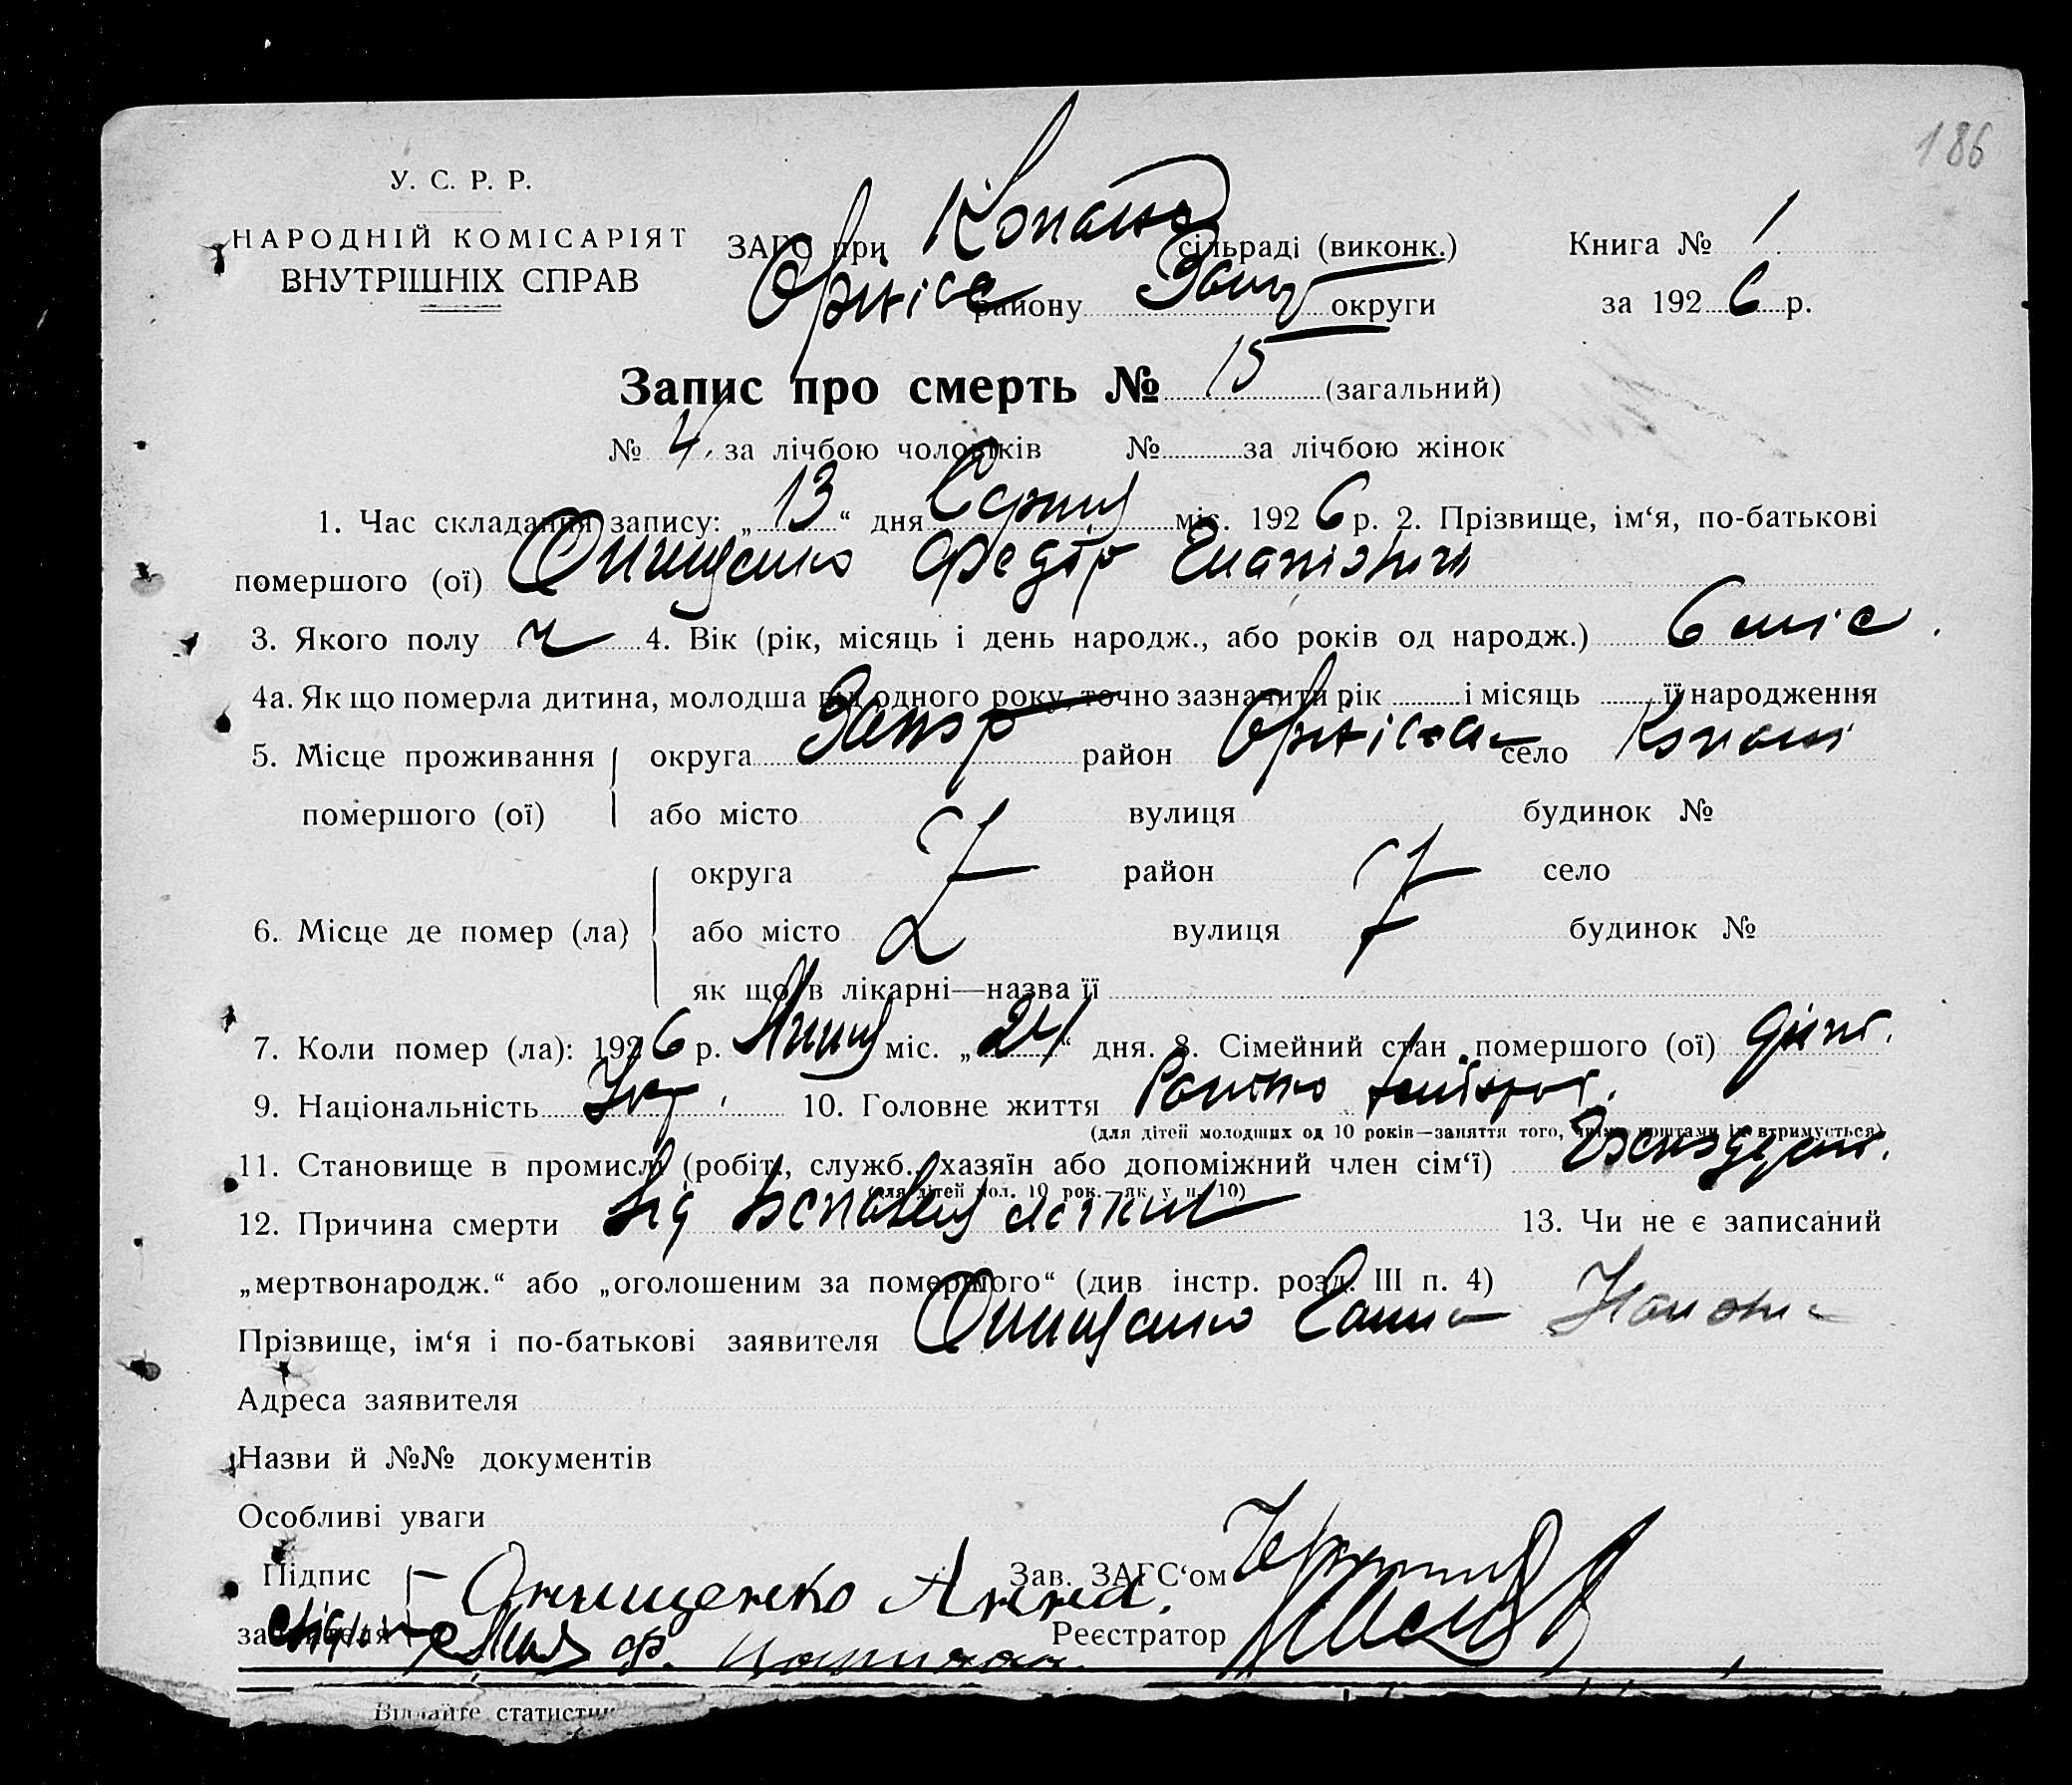 186
У. С. Р. Р.
НАРОДНІЙ КОМІСАРІЯТ
ВНУТРІШНІХ СПРАВ
ЗАГС при Копанс сільраді (виконк.)
Оріхіс району Запор округи
Книга № 1
за 1926 р.
Запис про смерть № 15 (загальний)
№ 4 за лічбою чоловіків № за лічбою жінок
1. Час складання запису: „13“ дня Серпня міс. 1926 р. 2. Прізвище, ім‘я, по-батькові
помершого (ої) Онищенко Федір
3. Якого полу ч 4. Вік (рік, місяць і день народж., або років од народж.) 6 міс.
4а. Як що померла дитина, молодша від одного року, точно зазначити рік і місяць її народження
5. Місце проживання помершого (ої) округа Запор район Оріхіський село Копані
або місто вулиця будинок №
6. Місце де помер (ла) округа район село
або місто вулиця будинок №
як що в лікарні—назва її
7. Коли помер (ла): 1926 р. Липня міс. „24“ дня. 8. Сімейний стан помершого (ої) дит.
9. Національність Укр. 10. Головне життя
(для дітей молодших од 10 років—заняття того, чиїми коштами їх втримується)
11. Становище в промислі (робітн., служб., хазяїн або допоміжний член сім‘ї)
(для дітей мол. 10 рок.—як у п. 10)
12. Причина смерти від легких 13. Чи не є записаний
„мертвонародж.“ або „оголошеним за помершого“ (див інстр. розд. III п. 4)
Прізвище, ім‘я і по-батькові заявителя Онищенко Ганна
Адреса заявителя
Назви й №№ документів
Особливі уваги
Підпис заявителя Онищенко Анна.
Зав. ЗАГС‘ом
Реєстратор
Відлайте статистик